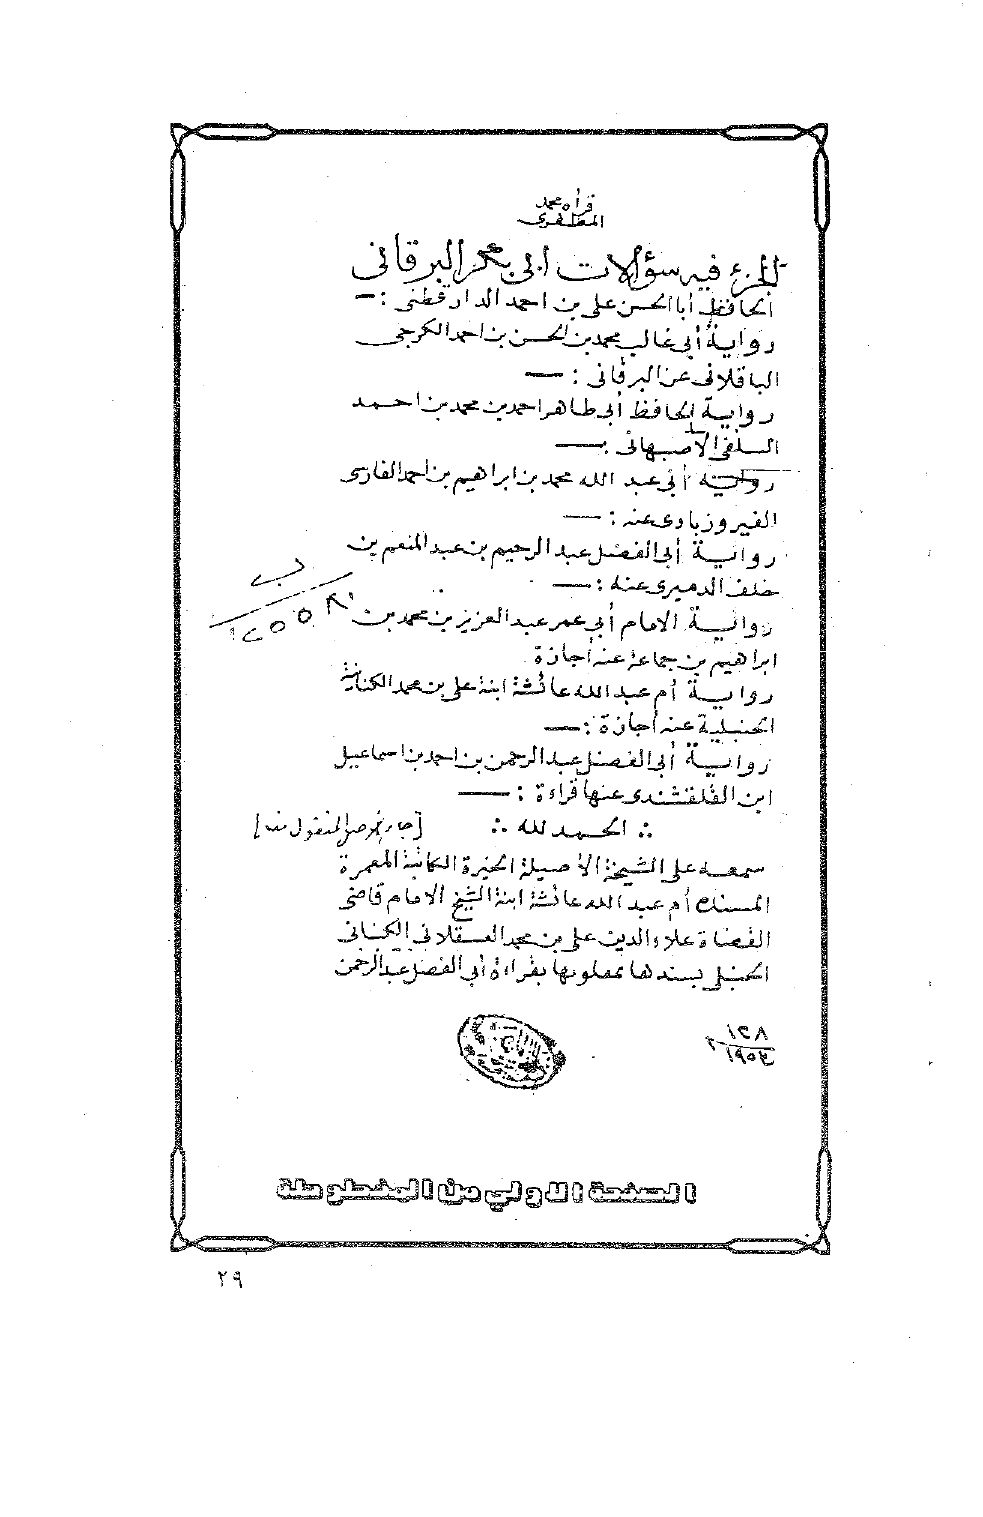 قرأه محمد
المظفري
الجزء فيه سؤالات ابي بكر البرقاني
الحافظ أبا الحسن علي بن احمد الدارقطني : —
رواية أبي غالب محمد بن الحسن بن احمد الكرجي
الباقلاني عن البرقاني : —
رواية الحافظ أبي طاهر احمد بن محمد بن احمد
السلفي الأصبهاني : —
رواية أبي عبد الله محمد بن ابراهيم بن احمد الفارسي
الفيروزبادي عنه : —
رواية أبي الفضل عبد الرحيم بن عبد المنعم بن
خلف الدميري عنه : —
رواية الامام أبي عمر عبد العزيز بن محمد بن
ابراهيم بن جماعة عنه أجازة
رواية أم عبد الله عائشة ابنة علي بن محمد الكنانية
الحنبلية عنه أجازة : —
رواية أبي الفضل عبد الرحمن بن احمد بن اسماعيل
ابن القلقشندي عنها قراءة : —
∴ الحمد لله ∴
سمعه على الشيخة الأصيلة الخيرة الكاتبة المعمرة
المسندة أم عبد الله عائشة ابنة الشيخ الامام قاضي
القضاة علاء الدين علي بن محمد العسقلاني الكناني
الحنبلي بسندها بقراءة أبي الفضل عبد الرحمن
ب
١٢٥٥٨
١٢٨
١٩٥٣ م
الصفحة الاولي من المخطوطة
٢٩